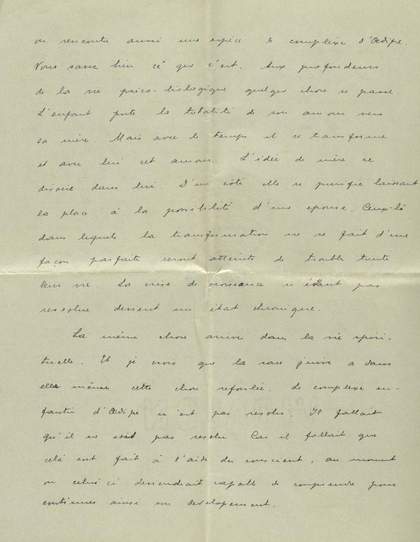 on rencontre aussi une espèce de complexe d'Œdipe
Vous savez bien ce que c'est. Aux profondeurs
de la vie psico-biologique quelque chose se passe
L'enfant porte la totalité de son amour vers
sa mère Mais avec le temps il se transforme
et avec lui cet amour. L'idée de mère se
divise dans lui D'un coté elle se purifie laissant
la place à la possibilité d'une epouse. Ceux-là
dans lesquels la transformation ne se fait d'une
façon parfaite seront atteints de trouble toute
leur vie La crise de croissance n'étant pas
resolue devient un état chronique.
La même chose arrive dans la vie spiri-
tuelle. Et je crois que la race juive a dans
elle même cette chose refoulée. Le complexe en-
fantin d'Œdipe n'est pas resolu Il fallait
qu'il ne soit pas resolu Car il fallait que
celà soit fait à l'aide du conscient, au moment
où celui ci deviendrait capable de comprendre pour
continuer ainsi son developement.